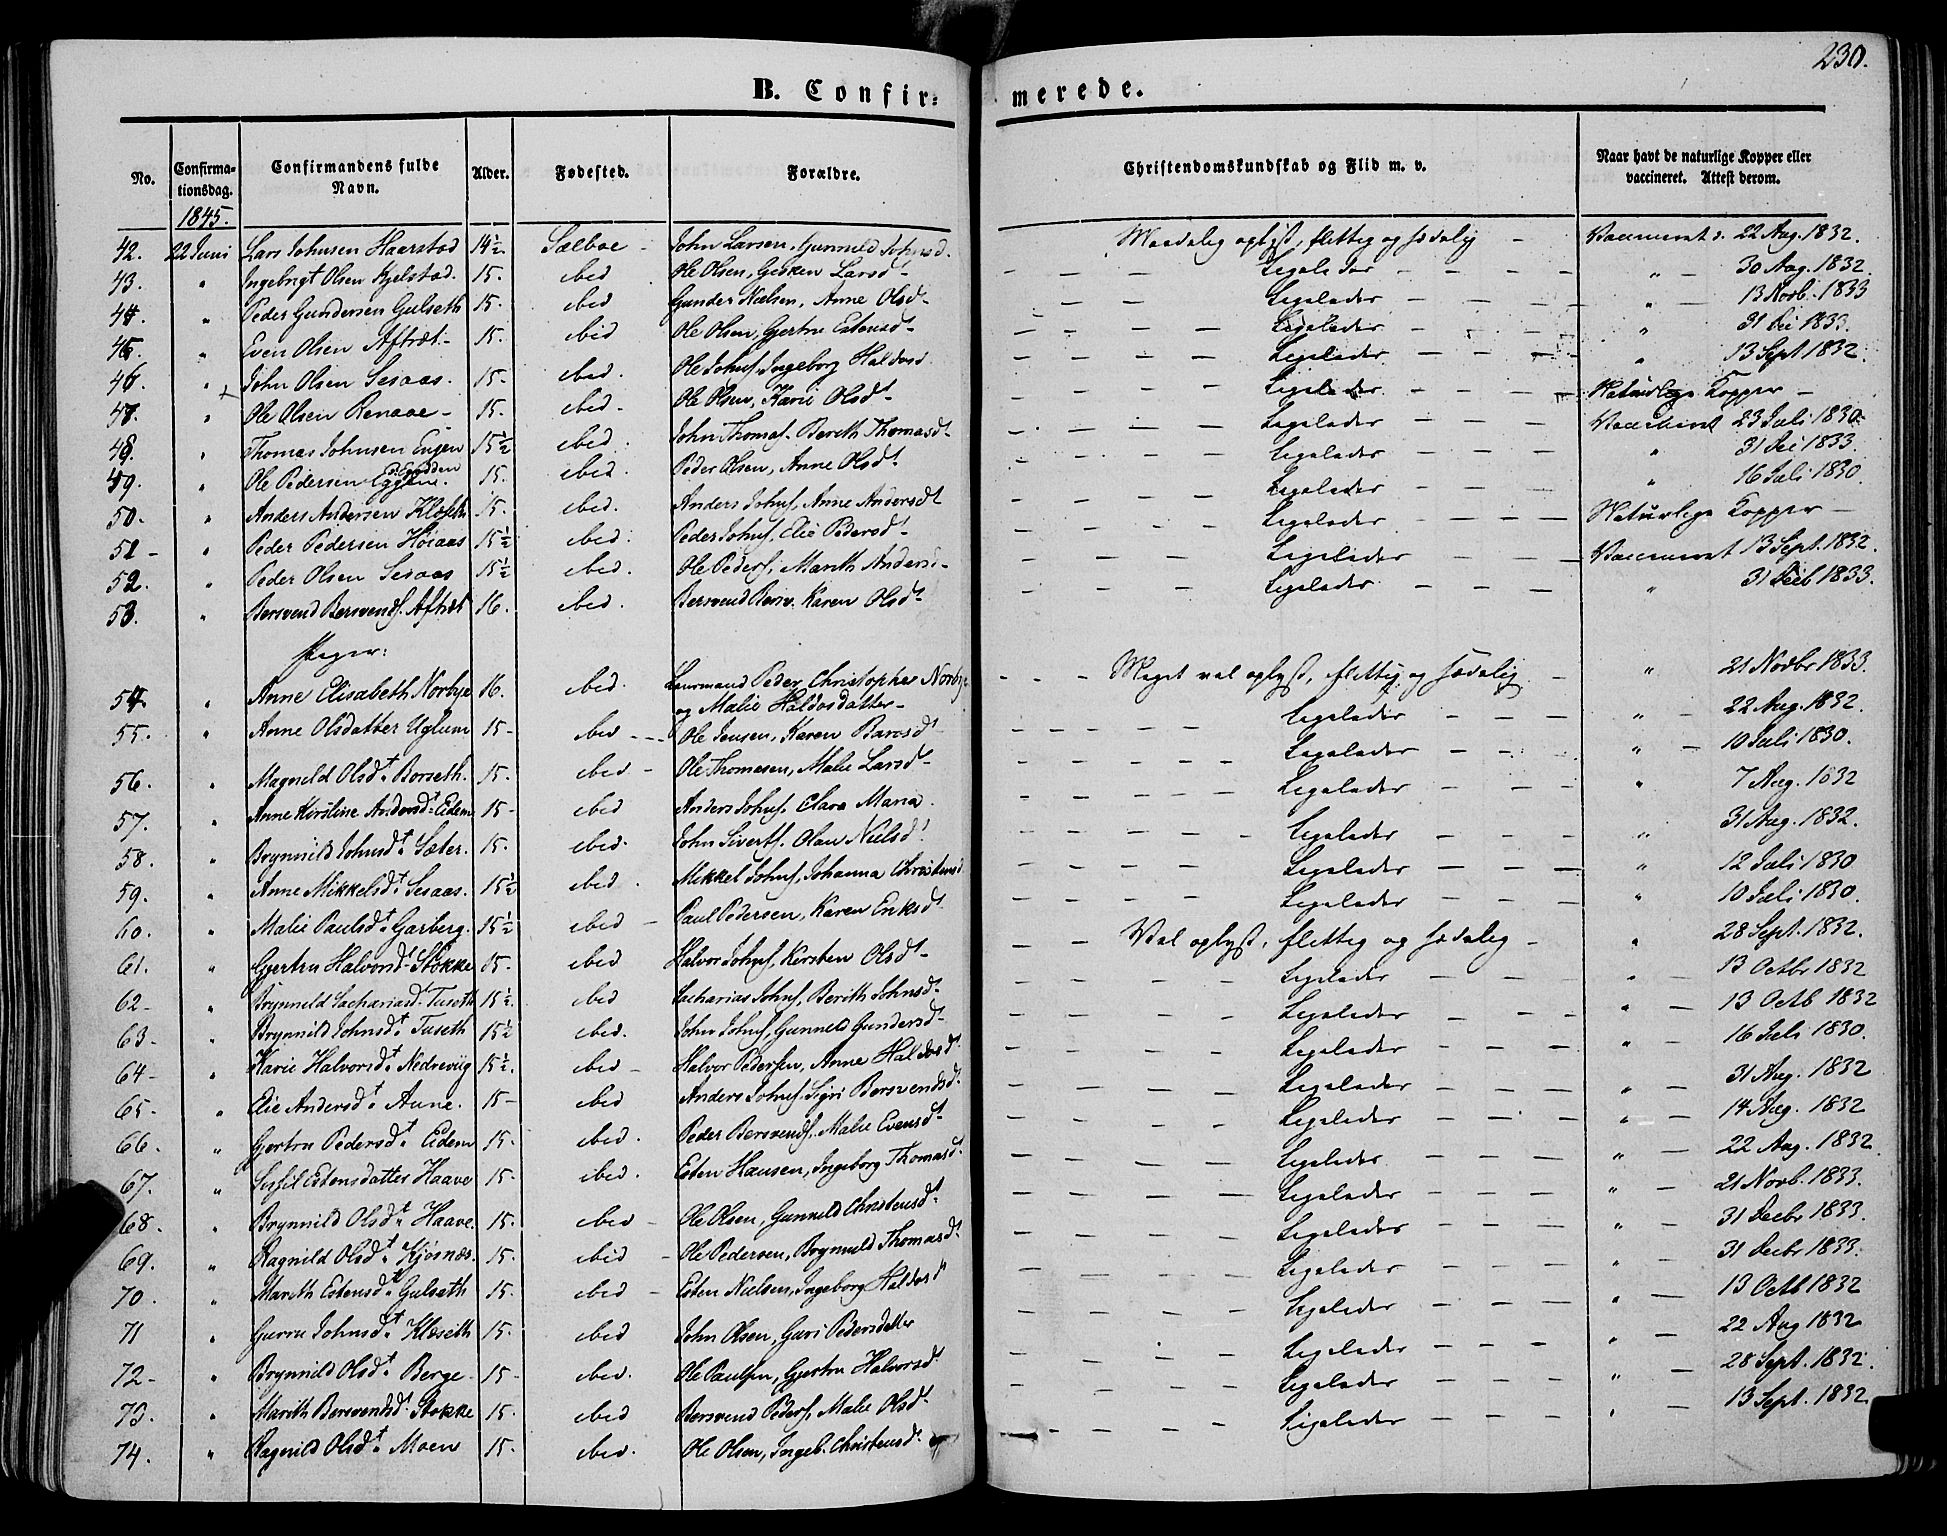 230.
B. Confir- merede.
No. Confirma-tionsdag. Confirmandens fulde Navn. Alder. Fødested. Forældre. Christendomskundskab og Flid m. v. Naar havt de naturlige Kopper eller vaccineret. Attest derom.
1845.
42. 22 Juni Lars Johnsen Haarstad 14½ Sælboe - John Larsen, Gunnild Maadelig oplyst, flittig og sædelig - 22 Aug. 1832.
43. " Ingebrigt Olsen Kjelstad. 15. ibid Ole Olsen, Larsd. Ligeledes " - 30 Aug. 1832.
44. " Peder Gundersen Gulseth 15. ibid Gunder Nielsen, Anne Olsd. Ligeledes " - 13 Novb. 1833
45. " Even Olsen Aftræt. 15. ibid Ole Olsen, Gjertru Estensd. Ligeledes " 31 De 1833.
46. " John Olsen Sesaas. 15. ibid. Ole Johns. Ingeborg Haldosd Ligeledes " 13 Sept 1832.
47. " Ole Olsen Renaae - 15. ibid. Ole Olsen, Karii Olsd. Ligeledes Naturlige Kopper -
48. " Thomas Johnsen Engen 15½ ibid. John Thomas. Berith Thomasd. Ligeledes 23 Juli 1830.
49. " Ole Pedersen 15. ibid. Peder Olsen, Anne Olsd. Ligeledes " 31 De 1833.
50. " Anders Andersen Klæseth 15. ibid. Anders Johns. Anne Andersd. Ligeledes " 16 Juli 1830.
51 - " Peder Pedersen Høiaas 15½ ibid. Peder Johns. Elie Pedersd. Ligeledes Naturlige Kopper -
52. " Peder Olsen Sesaas 15½ ibid. Ole Peders. Marith Andersd. Ligeledes 13 Sept. 1832.
53. " Bersvend Bersvends. Aftræt 16. ibid. Bersvend Bersv. Karen Olsd. Ligeledes " 31 Decb 1833.
Piger:
54. " Anne Elisabeth Norbye 16. ibid. Peder Christopher Norbye Meget vel oplyst, flittig og sædelig " 21 Novbr 1833.
og Malie Haldosdatter -
55. " Anne Olsdatter Uglum 15 - ibid - Ole Jensen, Karen Ligeledes " - 22 Aug. 1832.
56. " Magnild Olsd. Borseth. 15. ibid - Ole Thomesen, Malie Larsd. Ligeledes " - 10 Juli 1830.
57. " Anne Kirstine Andersd. Eidem 15 - ibid Anders Johns. Clara Maria. Ligeledes " 7 Aug. 1832
58. " Brynnild Johnsd. Sæter. 15. ibid. John Siverts. Nielsd. Ligeledes " 31 Aug. 1832.
59. " Anne Mikkelsd. Sesaas. 15½ ibid. Mikkel Johns. Johanna Christensd Ligeledes " 12 Juli 1830
60. " Malie Paulsd. Garberg. 15½ ibid - Paul Pedersen, Karen Eriksd. Ligeledes " 10 Juli 1830.
61. " Gjertru Halvorsd. Stokke 15. ibid Halvor Johns. Kirsten Olsd. Vel oplyst, flittig og sædelig - " 28 Sept. 1832.
62 - " Brynnild Sachariasd. Tuseth 15½. ibid Sacharias Johns. Berith Johnsd. Ligeledes " 13 Octbr 1832
63 - " Brynnild Johnsd. Tuseth 15½ ibid. John Johns. Gunnild Gundersd. Ligeledes " - 13 Octb 1832
64 - " Karii Halvorsd. Nedreviig 15½. ibid - Halvor Pedersen, Anne Haldosd. Ligeledes " 16 Juli 1830.
65 - " Elie Andersd. Aune. 15 - ibid Anders Johns. Sigri Bersvendsd. Ligeledes " - 31 Aug. 1832
66 - " Gjertru Pedersd. Eidem 15. ibid. Peder Bersvends. Malie Evensd. Ligeledes " - 14 Aug. 1832
67. " Estensdatter Haave 15. ibid. Esten Hansen, Ingeborg Thomasd. Ligeledes " - 22 Aug. 1832
68. " Brynnild Olsd. Haave. 15. ibid - Ole Olsen, Gunnild Christensd. Ligeledes " - 21 Novb. 1833.
69. " Ragnild Olsd. Kjøsnæs. 15. ibid - Ole Pedersen, Brynnild Thomasd. Ligeledes " - 31 Decbr 1833.
70. " Marith Estensd. Gulseth 15. ibid - Esten Nielsen, Ingeborg Haldosd Ligeledes " - 31 Decbr 1833.
71 " Guru Johnsd. Klæseth 15. ibid John Olsen, Guri Pedersdatter Ligeledes " - 13 Octb 1832
72 - " Brynnild Olsd. Berge - 15 - ibid. Ole Paulsen, Gjertru Halvorsd. Ligeledes " - 22 Aug 1832
73. " Marith Bersvendsd. Stokke 15. ibid Bersvend Peders. Malie Olsd. Ligeledes " - 28 Sept. 1832.
74. " Ragnild Olsd. Moen 15. ibid. Ole Olsen, Ingeb. Christensd. Ligeledes " - 13 Sept. 1832